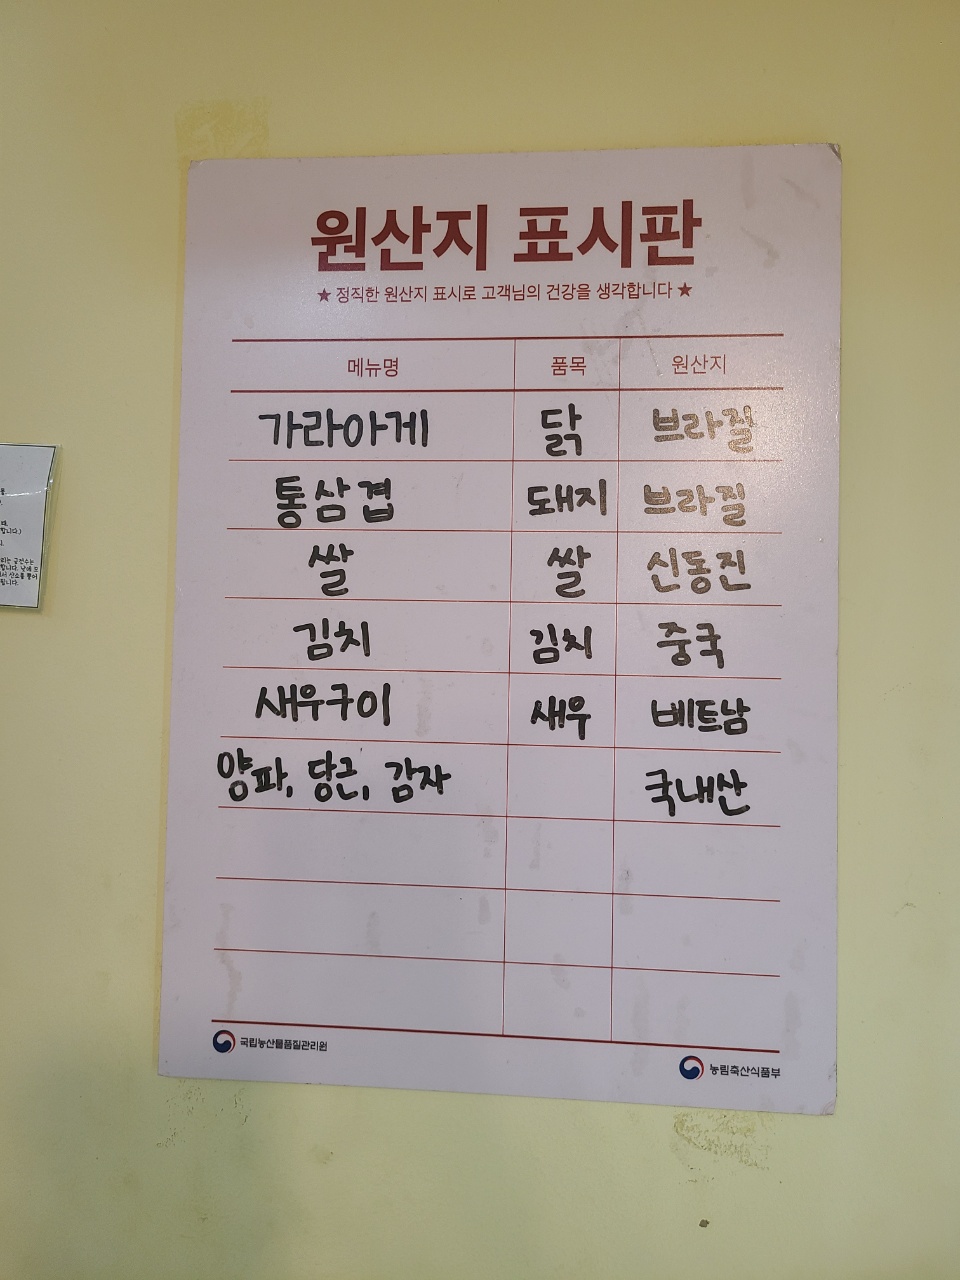 원산지 표시판
★ 정직한 원산지 표시로 고객님의 건강을 생각합니다 ★
메뉴명 품목 원산지
가라아게 닭 브라질
통삼겹 돼지 브라질
쌀 쌀 신동진
김치 김치 중국
새우구이 새우 베트남
양파, 당근, 감자 국내산
국립농산물품질관리원
농림축산식품부